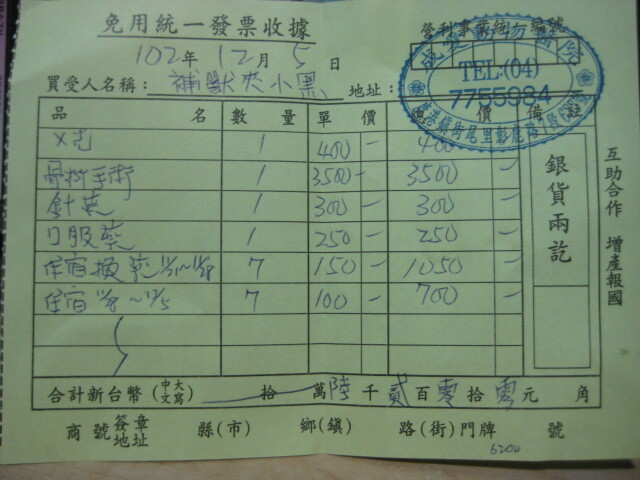 免用統一發票收據
營利事業統一編號
102年12月5日
TEL:(04)
7755984
買受人名稱：補獸夾小黑 地址：
品名 數量 單價 總價 備註
X光 1 400 — 400 —
骨折手術 1 3500 — 3500 —
針藥 1 300 — 300 —
口服藥 1 250 — 250 —
住宿換藥 7 150 — 1050 —
住宿 11/8~12/5 7 100 — 700 —
銀貨兩訖
互助合作 增產報國
合計新台幣(中文大寫) 拾 萬陸千貳百零拾零元 角
商號簽章地址 縣(市) 鄉(鎮) 路(街)門牌 號
6200